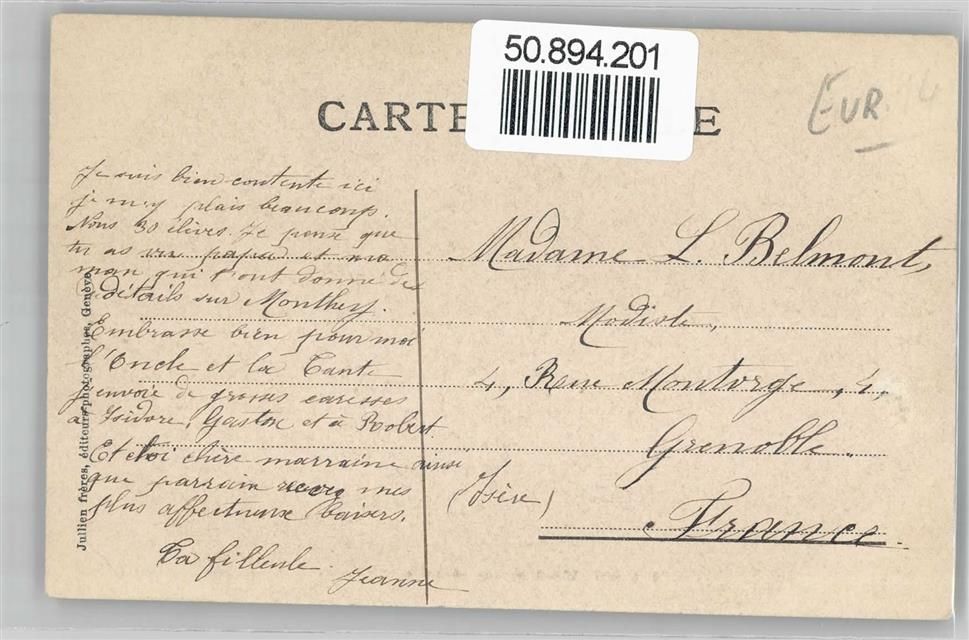 50.894.201
CARTE E
EUR
Je suis bien contente ici
je m'y plais beaucoup.
Nous 30 élèves. Je pense que
tu as vu papa et ma
man qui t'ont donné des
détails sur Monthey.
Embrasse bien pour moi
l'Oncle et la Tante
j'envoie de grosses caresses
à Isidore, Gaston et à Robert
Et toi chère marraine ainsi
que parrain mes
plus affectueux baisers.
Ta filleule
Jeanne
Madame L. Belmont,
Modiste,
4, Rue Montorge, 4,
Grenoble.
(Isère)
France.
Jullien frères, éditeurs-photographes, Genève